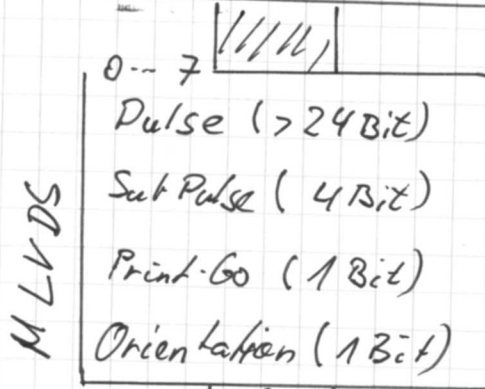 0--- 7
Pulse (>24Bit)
SubPulse (4Bit)
Print-Go (1Bit)
Orientation (1Bit)
MLVDS